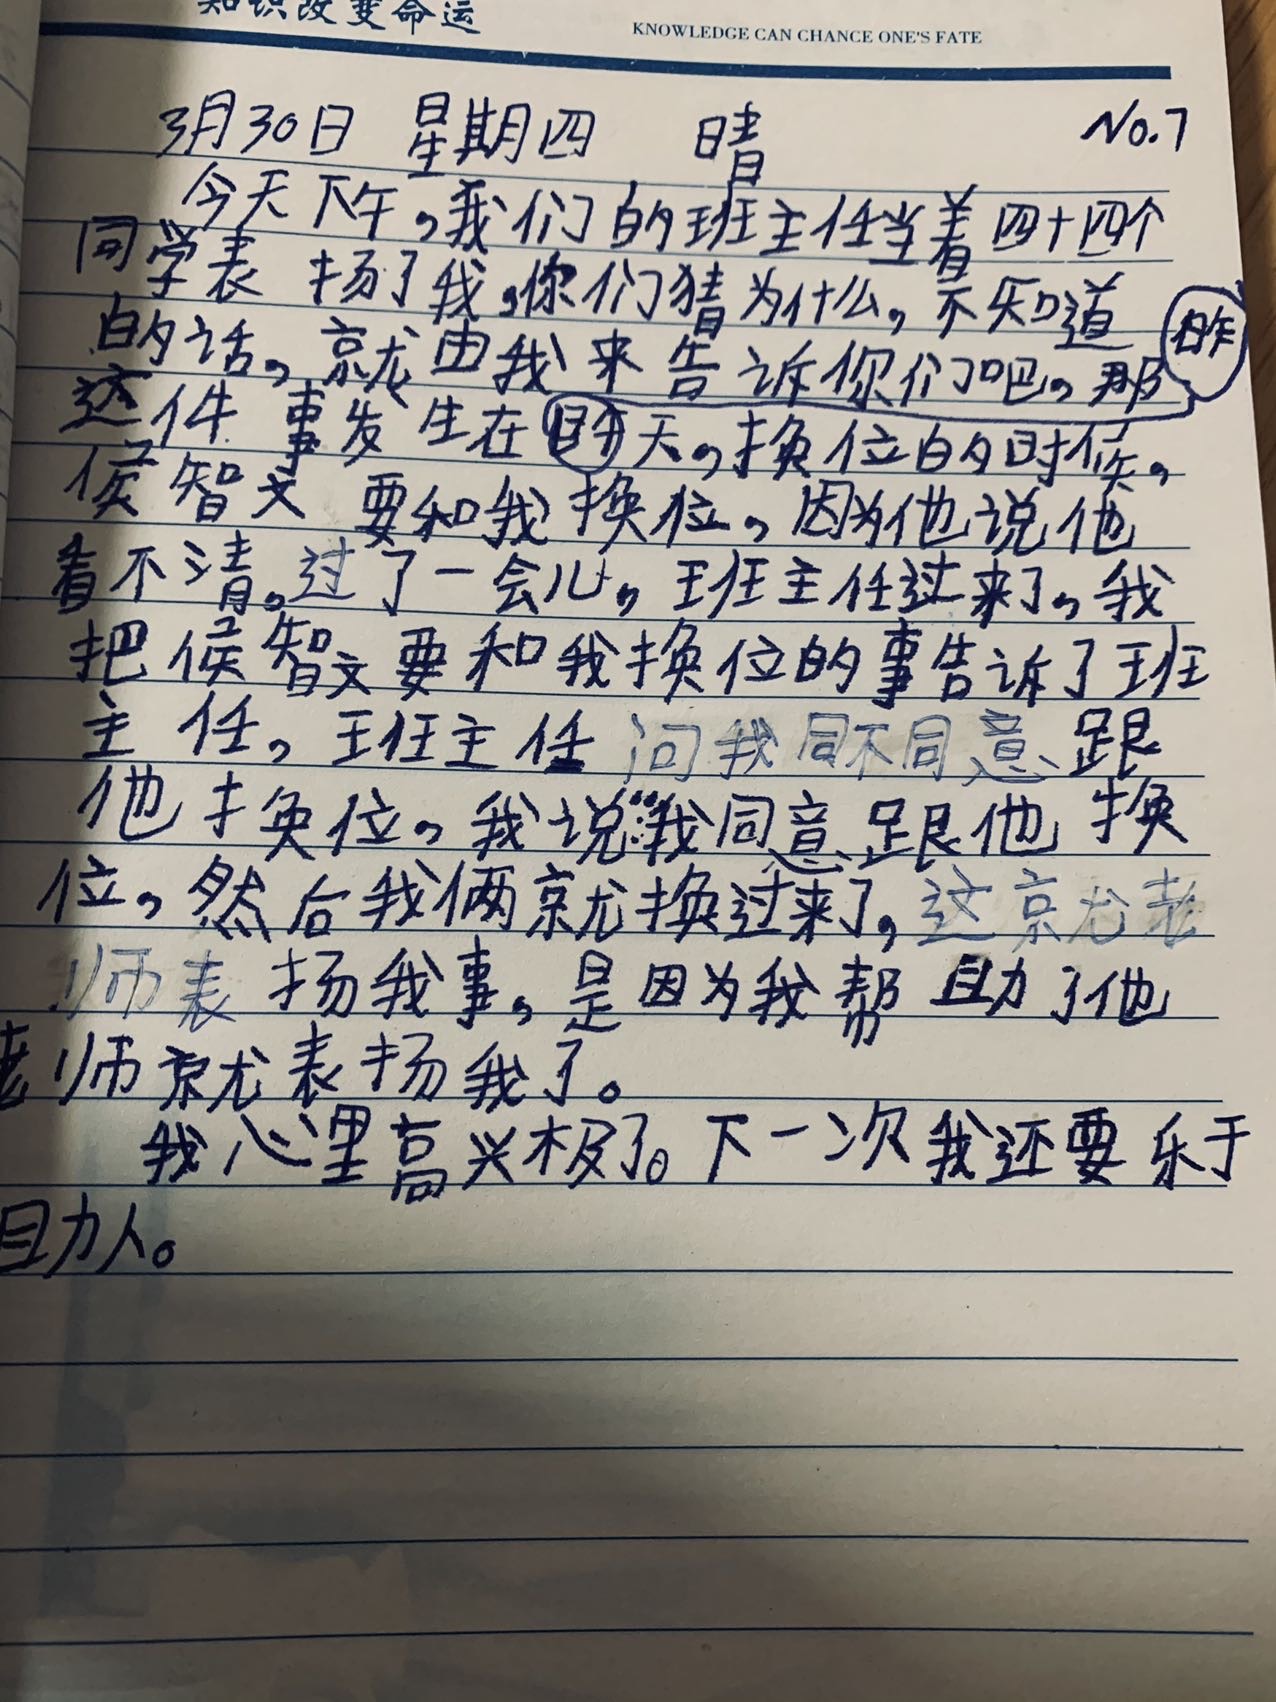 知识改变命运
KNOWLEDGE CAN CHANCE ONE'S FATE
3月30日 星期四 晴 No.7
今天下午，我们的班主任当着四十四个
同学表扬了我，你们猜为什么，不知道
的话，就由我来告诉你们吧，那 昨
这件事发生在昨天，换位的时候，
侯智文要和我换位，因为他说他
看不清。过了一会儿，班主任过来了，我
把侯智文要和我换位的事告诉了班
主任，班主任问我同不同意跟
他换位，我说“我同意跟他换
位，然后我俩就换过来了，这就老
师表扬我事，是因为我帮助了他
老师就表扬我了。
我心里高兴极了。下一次我还要乐于
助人。